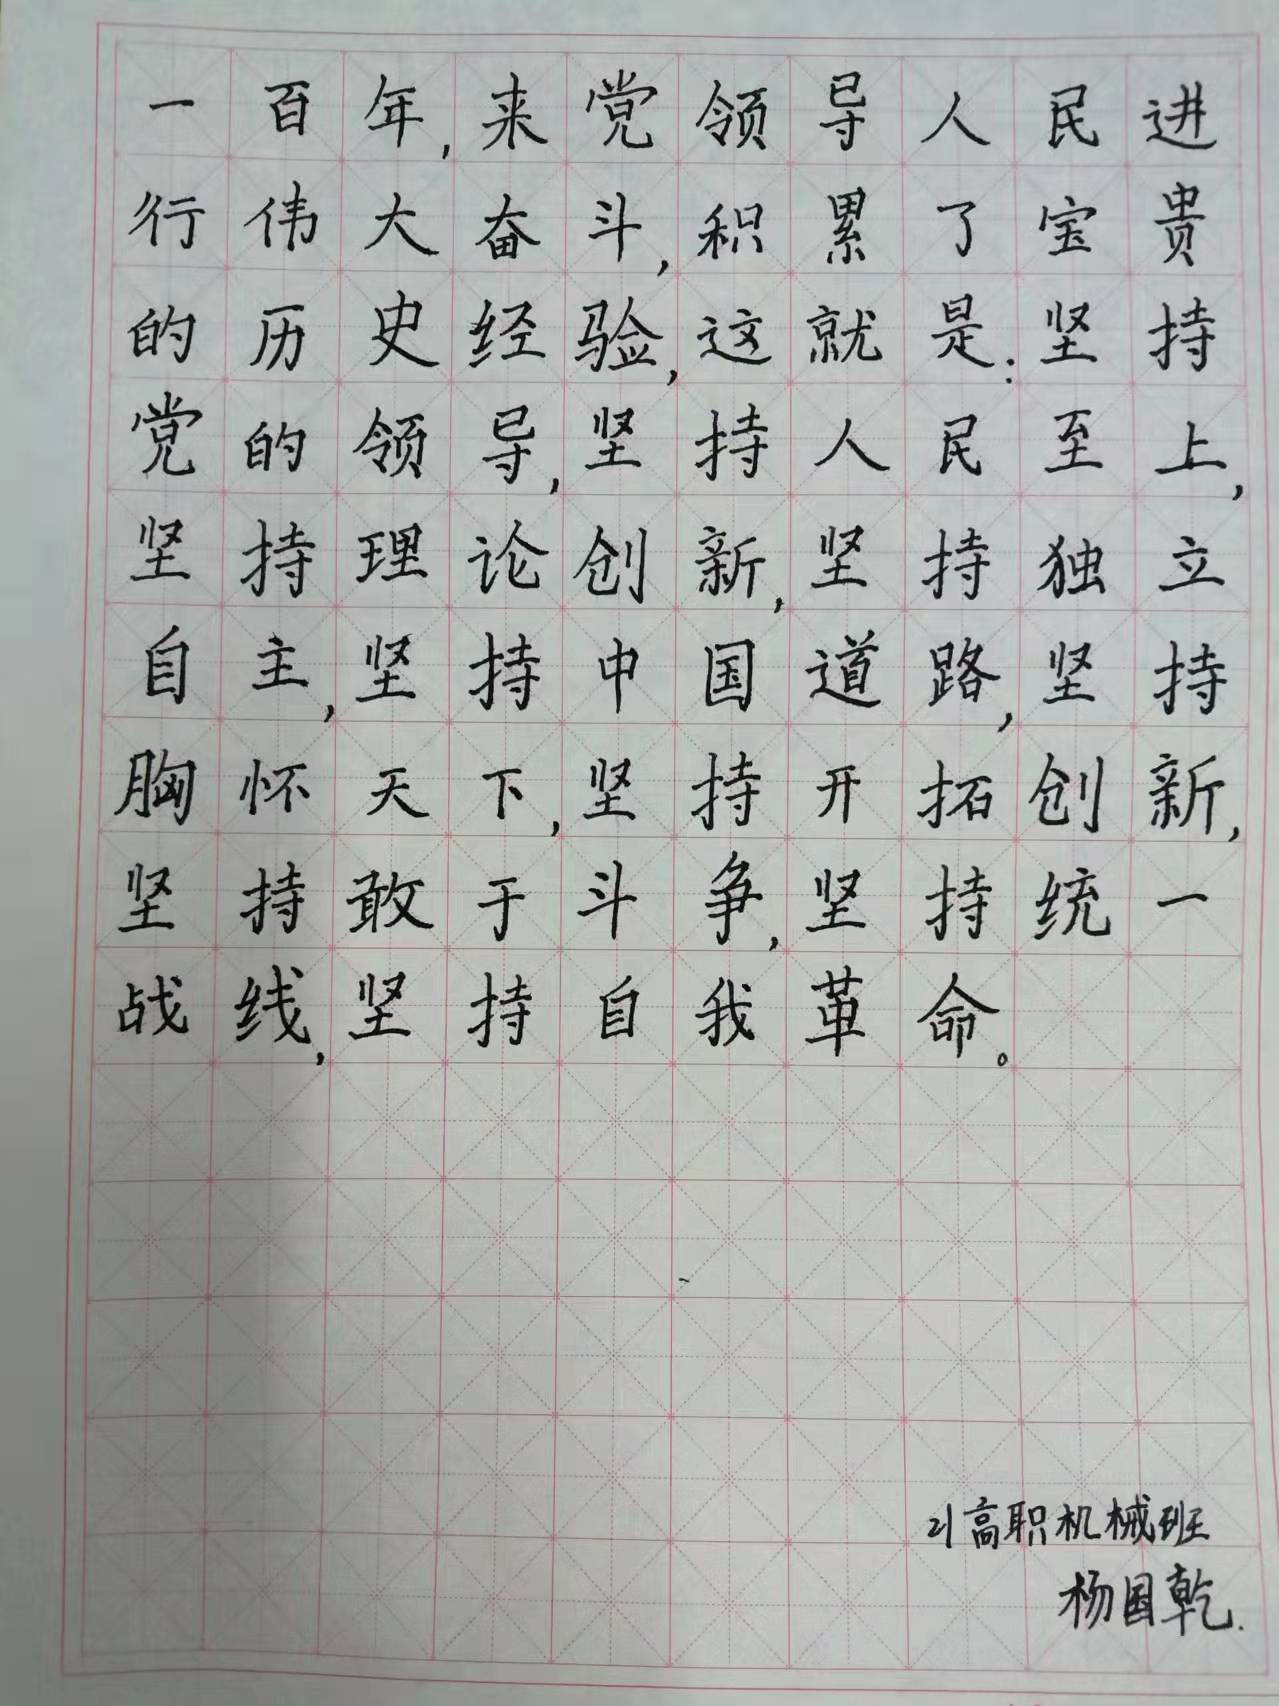 一百年,来党领导人民进
行伟大奋斗,积累了宝贵
的历史经验,这就是:坚持
党的领导,坚持人民至上,
坚持理论创新,坚持独立
自主,坚持中国道路,坚持
胸怀天下,坚持开拓创新,
坚持敢于斗争,坚持统一
战线,坚持自我革命。
21高职机械班
杨国乾.